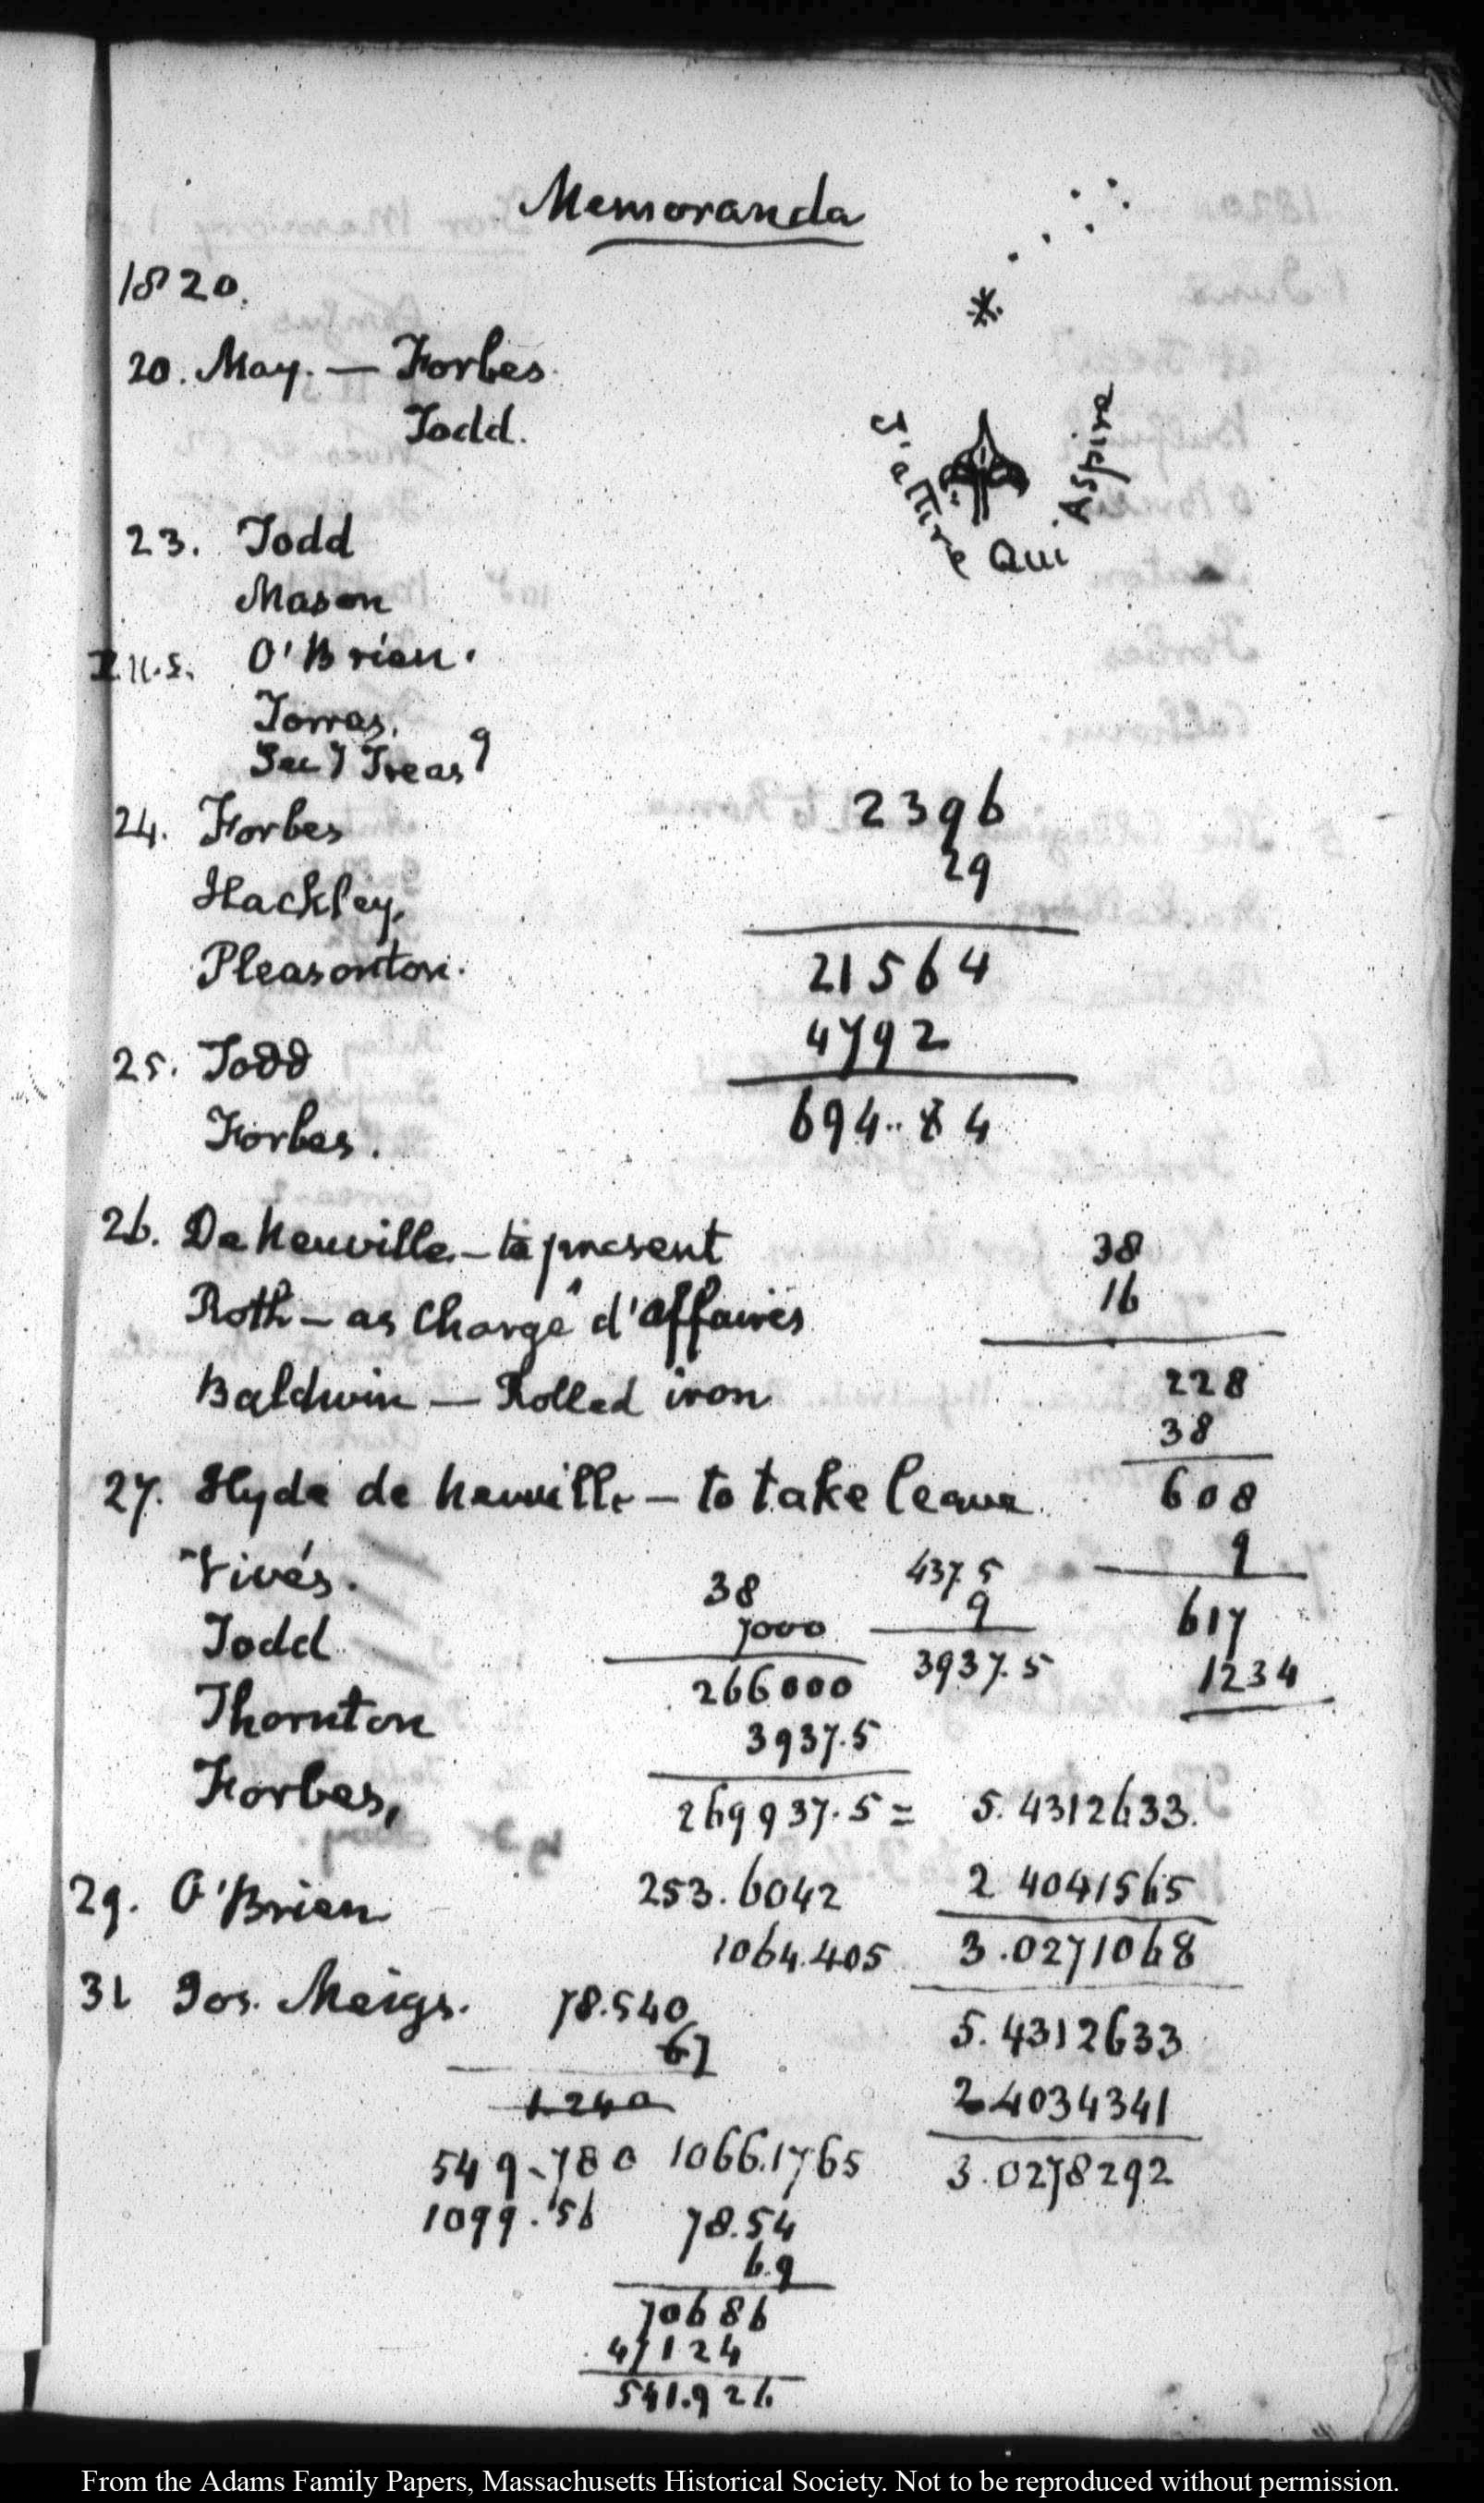 Memoranda
1820.
20. May. — Forbes.
Todd.
J'attire Qui Aspire
23. Todd
Mason
O'Brien.
Torras.
Secy Treasy
24. Forbes
Hackley,
Pleasonton.
2396
29
21564
4792
694..84
25. Todd
Forbes.
26. De Neuville — to present
Roth — as Chargé d'affaires
Baldwin — Rolled iron
38
16
228
38
608
9
617
1234
27. Hyde de Neuville — to take leave
Vivés.
Todd
Thornton
Forbes,
38
7000
266000
3937.5
269937.5 = 5.4312633.
437.5
9
3937.5
2 4041565
3.0271068
29. O'Brien
253.6042
1064.405
31 Jos. Meigs.
78.540
67
1.240
549.780 1066.1765
1099.56
5.4312633
2.4034341
3.0278292
78.54
6.9
70686
47124
541.926
From the Adams Family Papers, Massachusetts Historical Society. Not to be reproduced without permission.